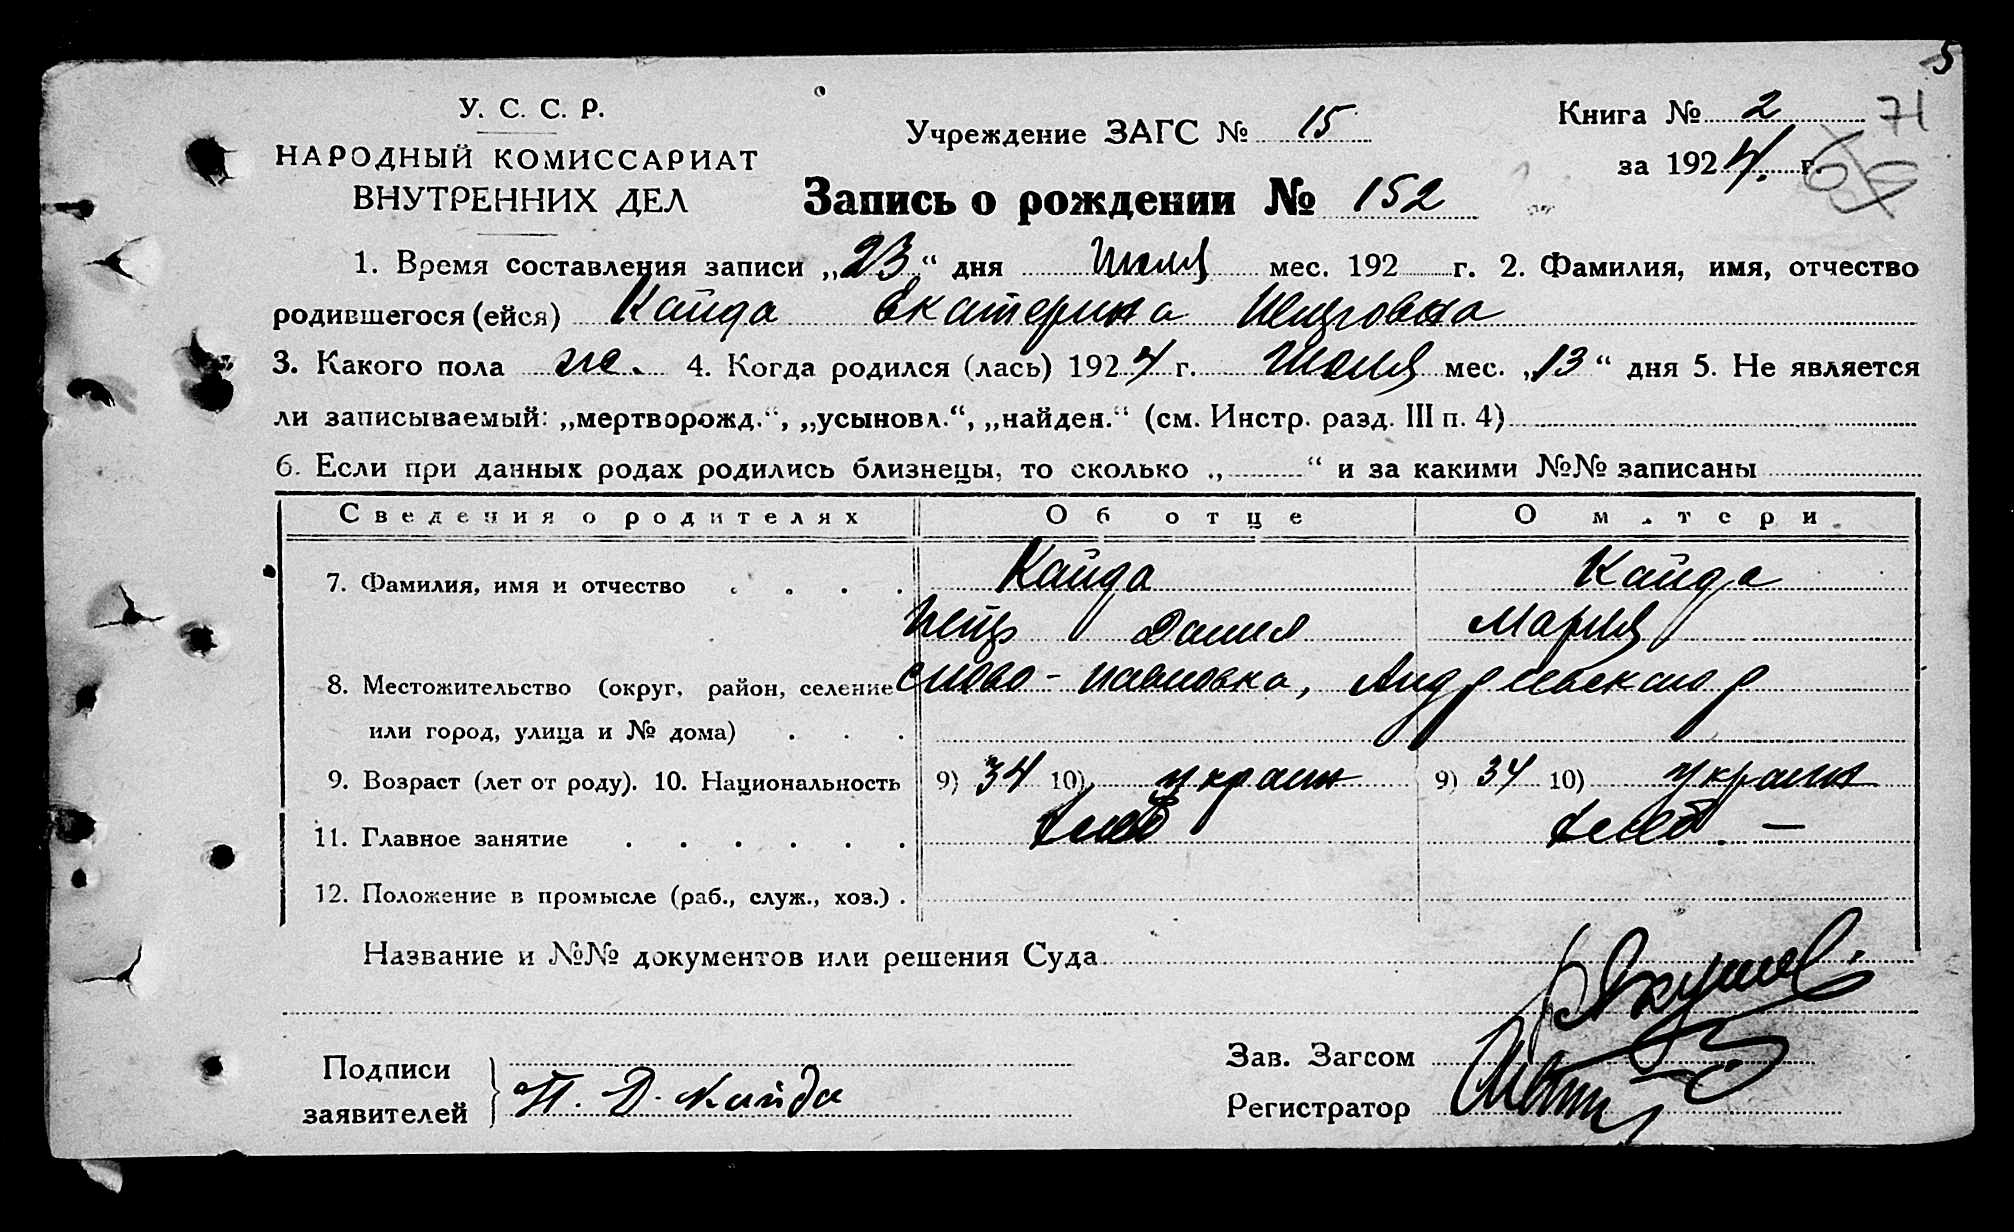 5
У. С. С. Р.
НАРОДНЫЙ КОМИССАРИАТ
ВНУТРЕННИХ ДЕЛ
Учреждение ЗАГС № 15
Книга № 2
71
за 1924 г.
Запись о рождении № 152
1. Время составления записи „23“ дня Июля мес. 192 г. 2. Фамилия, имя, отчество
родившегося (ейся) Кайда Екатерина Петровна
3. Какого пола ж. 4. Когда родился (лась) 1924 г. Июля мес. „13“ дня 5. Не является
ли записываемый: „мертворожд.“, „усыновл.“, „найден.“ (см. Инстр. разд. III п. 4)
6. Если при данных родах родились близнецы, то сколько „ “ и за какими №№ записаны
Сведения о родителях Об отце О матери
7. Фамилия, имя и отчество Кайда Кайда
Петр Данил Мария
8. Местожительство (округ, район, селение Ново-Павловка, р
или город, улица и № дома)
9. Возраст (лет от роду). 10. Национальность 9) 34 10) украин 9) 34 10) украин
11. Главное занятие хлеб хлеб. —
12. Положение в промысле (раб., служ., хоз.)
Название и №№ документов или решения Суда
Подписи
заявителей П. Д. Кайда
Зав. Загсом
Регистратор